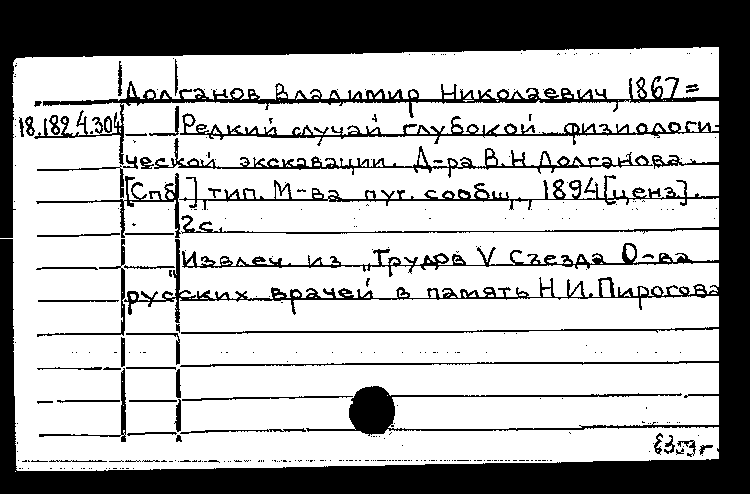 Долганов, Владимир Николаевич, 1867=
18.182.4.304 Редкий случай глубокой физиологи-
ческой экскавации. Д-ра В.Н.Долганова.
[Спб.], тип. М-ва пут. сообщ., 1894[ценз].
2с.
Извлеч. из „Трудов V Съезда О-ва
русских врачей в память Н.И.Пирогова"